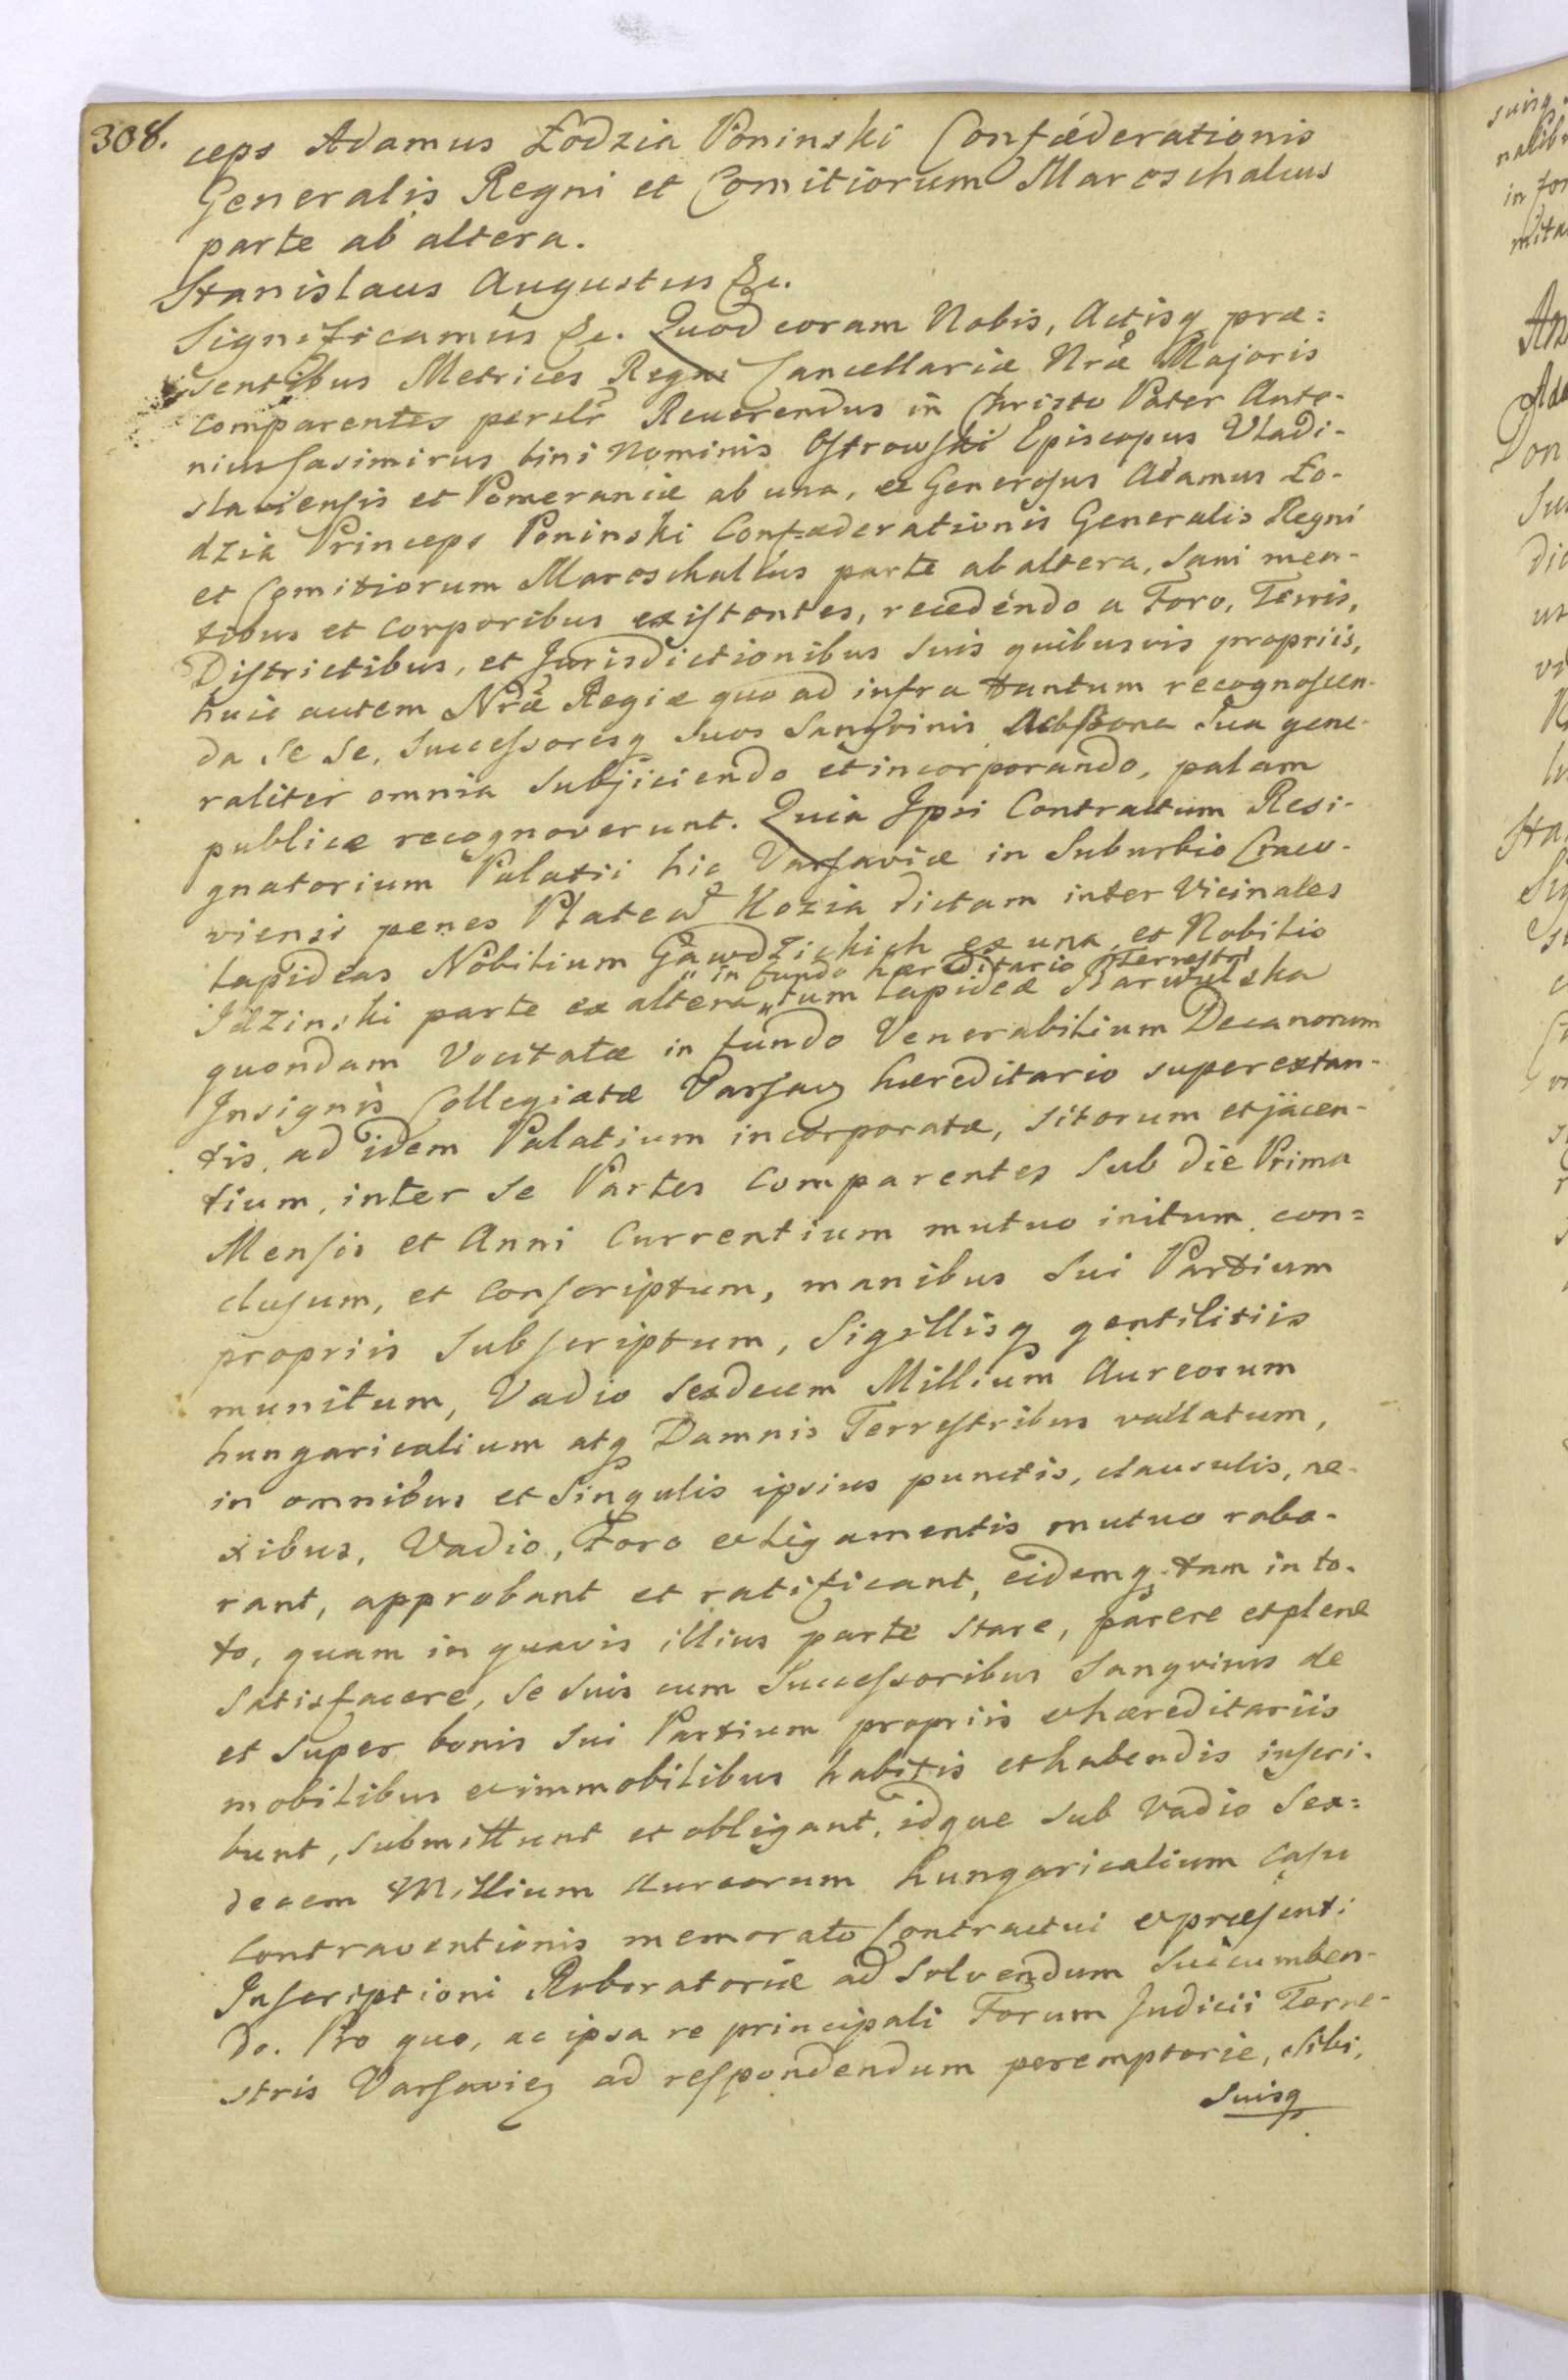 308.
ceps Adamus Łodzia Poninski Confæderationis
Generalis Regni et Comitiorum Mareschalcus
parte ab altera.
Stanislaus Augustus &c.
Significamus &c. Quod coram Nobis, Actisq præ=
sentibus Metrices Regni Cancellariæ Nræ Majoris
comparentes perslr Reverendus in Christo Pater Anto-
nius Casimirus bini Nominis Ostrowski Episcopus Vladi-
slaviensis et Pomeraniæ ab una, et Generosus Adamus Ło-
dzia Princeps Poninski Confæderationis Generalis Regni
et Comitiorum Mareschalcus parte ab altera, Sani men-
tibus et corporibus existentes, recedendo a Foro, Terris,
Districtibus, et Jurisdictionibus suis quibusvis propriis,
huic autem Nræ Regiæ quo ad infra tantum recognoscen-
da se se, Successoresq suos Sangvinis, sua gene-
raliter omnia Subjiciendo et incorporando, palam
publice recognoverunt. Quia Ipsi Contractum Resi-
gnatorium Palatii hic Varsaviæ in Suburbio Craco-
viensi penes Plateā Kozia dictam inter Vicinales
lapideas Nobilium Gawdzickich ex una, et Nobilis
Idzinski parte ex altera „ tum lapideæ Barwulska
„ in fundo hæreditario Terrestri
quondam Vocitatæ in fundo Venerabilium Decanorum
Insignis Collegiatæ Varsav hæreditario superextan-
tis, ad idem Palatium incorporatæ, sitorum et jacen-
tium, inter se Partes Comparentes sub die Prima
Mensis et Anni Currentium mutuo initum, con=
clusum, et conscriptum, manibus sui Partium
propriis Subscriptum, Sigillisq gentilitiis
munitum, Vadio sexdecem Millium Aureorum
hungaricalium atq Damnis Terrestribus vallatum,
in omnibus et Singulis ipsius punctis, clausulis, ne-
xibus, Vadio, Foro et ligamentis mutuo robo-
rant, approbant et ratificant, eidemq tam in to-
to, quam in quavis illius parte stare, parere et plene
Satisfacere, se suis cum Successoribus Sangvinis de
et super bonis sui Partium propriis et hæreditariis
mobilibus et immobilibus habitis et habendis inscri-
bunt, submittunt et obligant, idque sub Vadio Sex=
decem Millium Aureorum hungaricalium Casu
contraventionis memorato Contractui et præsenti
Inscriptioni Roboratoriæ ad solvendum Succumben-
do. Pro quo, ac ipsa re principali Forum Judicii Terre-
stris Varsavien ad respondendum peremptorie, sibi,
suisq